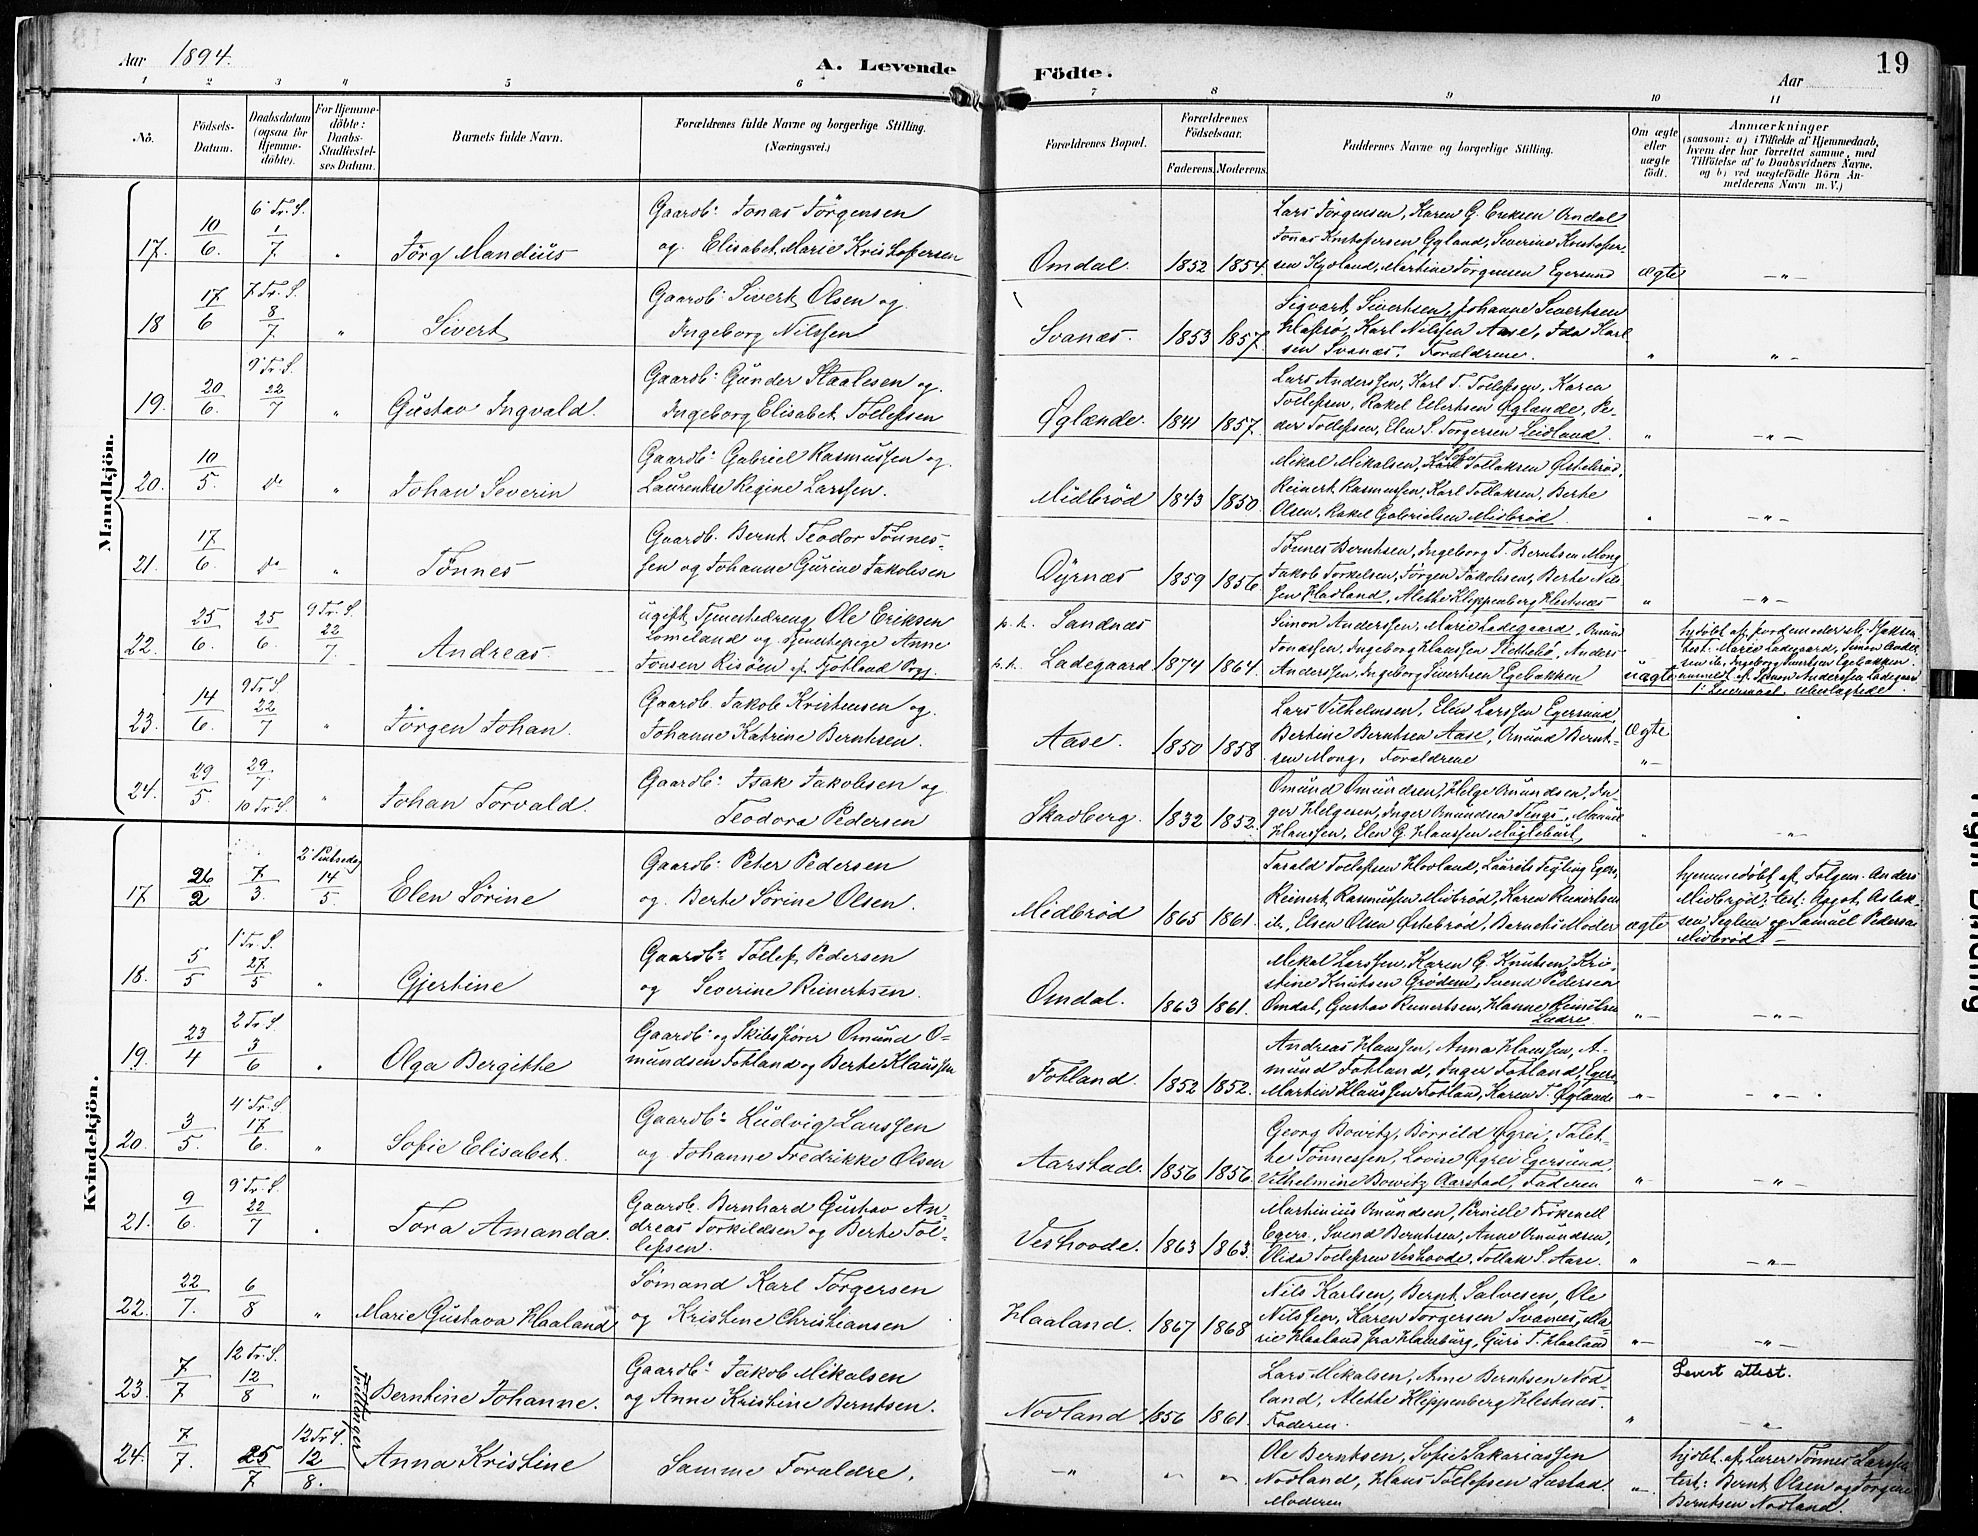 Aar 1894.
A. Levende Födte.
Aar
19
1 2 3 4 5 6 7 8 9 10 11
No.
Födsels-Datum.
Daabsdatum (ogsaa for Hjemmedöbte).
For Hjemmedöbte: Daabs-Stadfæstelses Datum.
Barnets fulde Navn.
Forældrenes fulde Navne og borgerlige Stilling.
(Næringsvei.)
Forældrenes Bopæl.
Forældrenes Födselsaar.
Faderens. Moderens.
Faddernes Navne og borgerlige Stilling.
Om ægte eller uægte födt.
Anmærkninger
(saasom: a) i Tilfælde af Hjemmedaab,
hvem der har forrettet samme, med
Tilföielse af to Daabsvidners Navne,
og b) ved uægtefödte Börn An-
melderens Navn m. V.)
Mandkjön.
17. 10/6 6' Tr. S. 1/7 " Jörg Mandius
Gaardb: Jonas Jörgensen
og Elisabet Marie Kristofersen
Omdal. 1852 1854
Lars Jörgensen, Karen G. Eriksen Omdal
Jonas Kristofersen Øgland, Severine Kristofer-
sen Hydland, Martine Jörgensen Egersund
ægte —"—
18 17/6 7 Tr. S. 8/7 " Sivert
Gaardb: Sivert Olsen og
Ingeborg Nilssen
Svanæs. 1853 1857.
Sigvart Sivertsen, Johanne Sivertsen
Karl Nilssen Aase, Ida Karl
sen Svanæs. Forældrene.
" "—
19. 20/6. 9' Tr. S. 22/7 " Gustav Ingvald.
Gaardb: Gunder Staalesen og
Ingeborg Elisabet Tollefsen
Øglænde. 1841 1857.
Lars Anderssen, Karl T. Tollefsen, Karen
Tollefsen, Rakel Eilertsen Øglande, Pe-
der Tollefsen, Elen S. Torgersen Leidland.
" —"—
20. 10/5. do " Johan Severin
Gaardb: Gabriel Rasmussen og
Laurentse Regine Larssen.
Midbrød 1843 1850.
Mikal Mikalsen, Tollaksen Østebrød,
Reinert Rasmussen, Karl Tollaksen, Berte
Olsen, Rakel Gabrielsen Midbrød.
" —"—
21. 17/6. do " Tønnes
Gaardb. Bernt Teodor Tønnes-
sen og Johanne Gurine Jakobsen
Dyrnæs 1859 1856
Tønnes Berntsen, Ingeborg T. Berntsen Mong
Jakob Torkelsen, Jørgen Jakobsen, Berte Nils-
sen Hadland, Alette Kleppenberg Hestnæs
" —"—
22. 25/6. 25/6. 9 Tr. S. 22/7. Andreas.
ugift Tjenestedreng Ole Eriksen
Lomeland og tjenestepige Anne
Jonsen Risøen af Fjotland Prgj.
p. t. Sandnæs
p. t. Ladegaard 1874 1864.
Simon Anderssen, Marie Ladegaard, Omund
Jonassen, Ingeborg Klaussen Slettebø, Anders
Anderssen, Ingeborg Sivertsen Egebakken
uægte
hjdøbt af jordemoder
test: Marie Ladegaard, Simon Ander-
sen ib, Ingeborg Sivertsen Egebakken.
anmeldt af Simon Anderssen Ladegaard
1' Leiermaal
23. 14/6. 9 Tr. S. 22/7 " Jörgen Johan.
Gaardb. Jakob Kristensen og
Johanne Katrine Berntsen.
Aase. 1850 1858.
Lars Vilhelmsen, Elen Larssen Egersund,
Bertine Berntsen Aase, Omund Bernt-
sen Mong, Forældrene
Ægte "—
24. 29/5. 29/7 10 Tr. S. " Johan Torvald.
Gaardb: Isak Jakobsen og
Teodora Pedersen
Skadberg. 1832 1852.
Omund Omundsen, Helge Omundsen, In-
ger Helgesen, Inger Omundsen Tengs,
Klaussen, Elen G. Klaussen Møglebust,
" "—
Kvindekjön.
17 26/2 7/3. 2' Pintsedag 14/5 Elen Sørine
Gaardb: Peter Pedersen
og Berte Sørine Olsen.
Midbrød 1865 1861.
Tarald Tollefsen Hovland, Laurits Fegling Egers,
Reinert Rasmussen Midbrød, Karen Reinertsen
ib, Elsen Olsen Østebrød, Barnets Moder
ægte
hjemmedøbt af Følgem. Anders
Midbrød; test: Aagot Aslak-
sen Seglem og Samuel Pedersen
Midbrød. —
18. 5/5 1' Tr. S. 27/5 " Gjertine
Gaardb: Tollef Pedersen
og Severine Reinertsen.
Omdal. 1863 1861.
Mikal Larssen, Karen G. Knutsen, Kri-
stine Knutsen Grødem, Svend Pedersen
Omdal, Gustav Reinertsen, Hanne Reinertsen
Lædre
"— —"—
19. 23/4 2 Tr. S. 3/6 " Olga Bergitte
Gaardb: og Skibsfører Omund O-
mundsen Fotland og Berte Klaussen
Fotland. 1852 1852.
Andreas Klaussen, Anna Klaussen, A-
mund Fotland, Inger Fotland, Egers
Martin Klaussen Fotland, Karen T. Øglande
"— —"—
20. 3/5 4' Tr. S. 17/6. " Sofie Elisabet.
Gaardb: Ludvig Larssen
og Johanne Fredrikke Olsen
Aarstad. 1856 1856.
Georg Bowitz, Børrild Øgrei, Talet-
te Tønnessen, Lovise Øgrei Egersund,
Vilhelmine Bowitz Aarstad, Faderen
" —"—
21. 9/6. 9' Tr. S. 22/7 " Tora Amanda.
Gaardb. Bernhard Gustav An-
dreas Torkildsen og Berte Tol-
lefsen.
Veshovde. 1863 1863.
Martinius Omundsen, Pernille
Egers, Svend Berntsen, Anne Omundsen,
Olida Tollefsen Veshovde, Tollak S. Aase.
" —"—
22. 22/7. 6/8 " Marie Gustava Haaland
Sømand Karl Torgersen
og Kristine Christiansen
Haaland. 1867 1868
Nils Karlsen, Bernt Salvesen, Ole
Nilssen, Karen Torgersen Svanes, Ma-
rie Haaland fra Hamburg, Guri T. Haaland
"— "—
Tvillinger
23. 7/7 12 Tr. S. 12/8 " Berntine Johanne.
Gaardb: Jakob Mikalsen
og Anne Kristine Berntsen.
Nodland 1856 1861.
Lars Mikalsen, Anne Berntsen Nod-
land, Alette Kleppenberg Hestnæs.
Faderen.
"
Levert attest.
"
24. 7/7. 25/7 12 Tr. S. 12/8. Anna Kristine
Samme Forældre.
—"— "— "—
Ole Berntsen, Sofie Sakariassen
Nodland, Hans Tollefsen Lastad.
Moderen
"—
hjdøbt af Lærer Tønnes Larssen
test: Bernt Olsen og Jørgen
Berntsen Nodland.